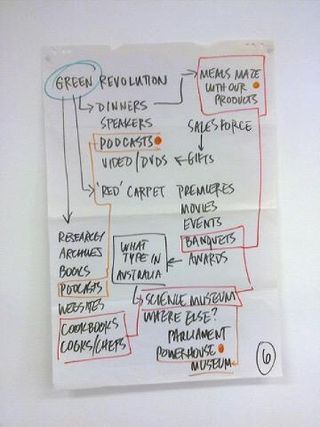 GREEN REVOLUTION
MEALS MADE
WITH OUR
PRODUCTS
DINNERS
SPEAKERS
PODCASTS
VIDEO/DVDS
SALESFORCE
GIFTS
'RED' CARPET PREMIERES
MOVIES
EVENTS
BANQUETS
AWARDS
RESEARCH
ARCHIVES
BOOKS
PODCASTS
WEBSITES
COOKBOOKS
COOKS/CHEFS
WHAT
TYPE IN
AUSTRALIA?
SCIENCE MUSEUM
WHERE ELSE?
PARLIAMENT
POWERHOUSE
MUSEUM
6